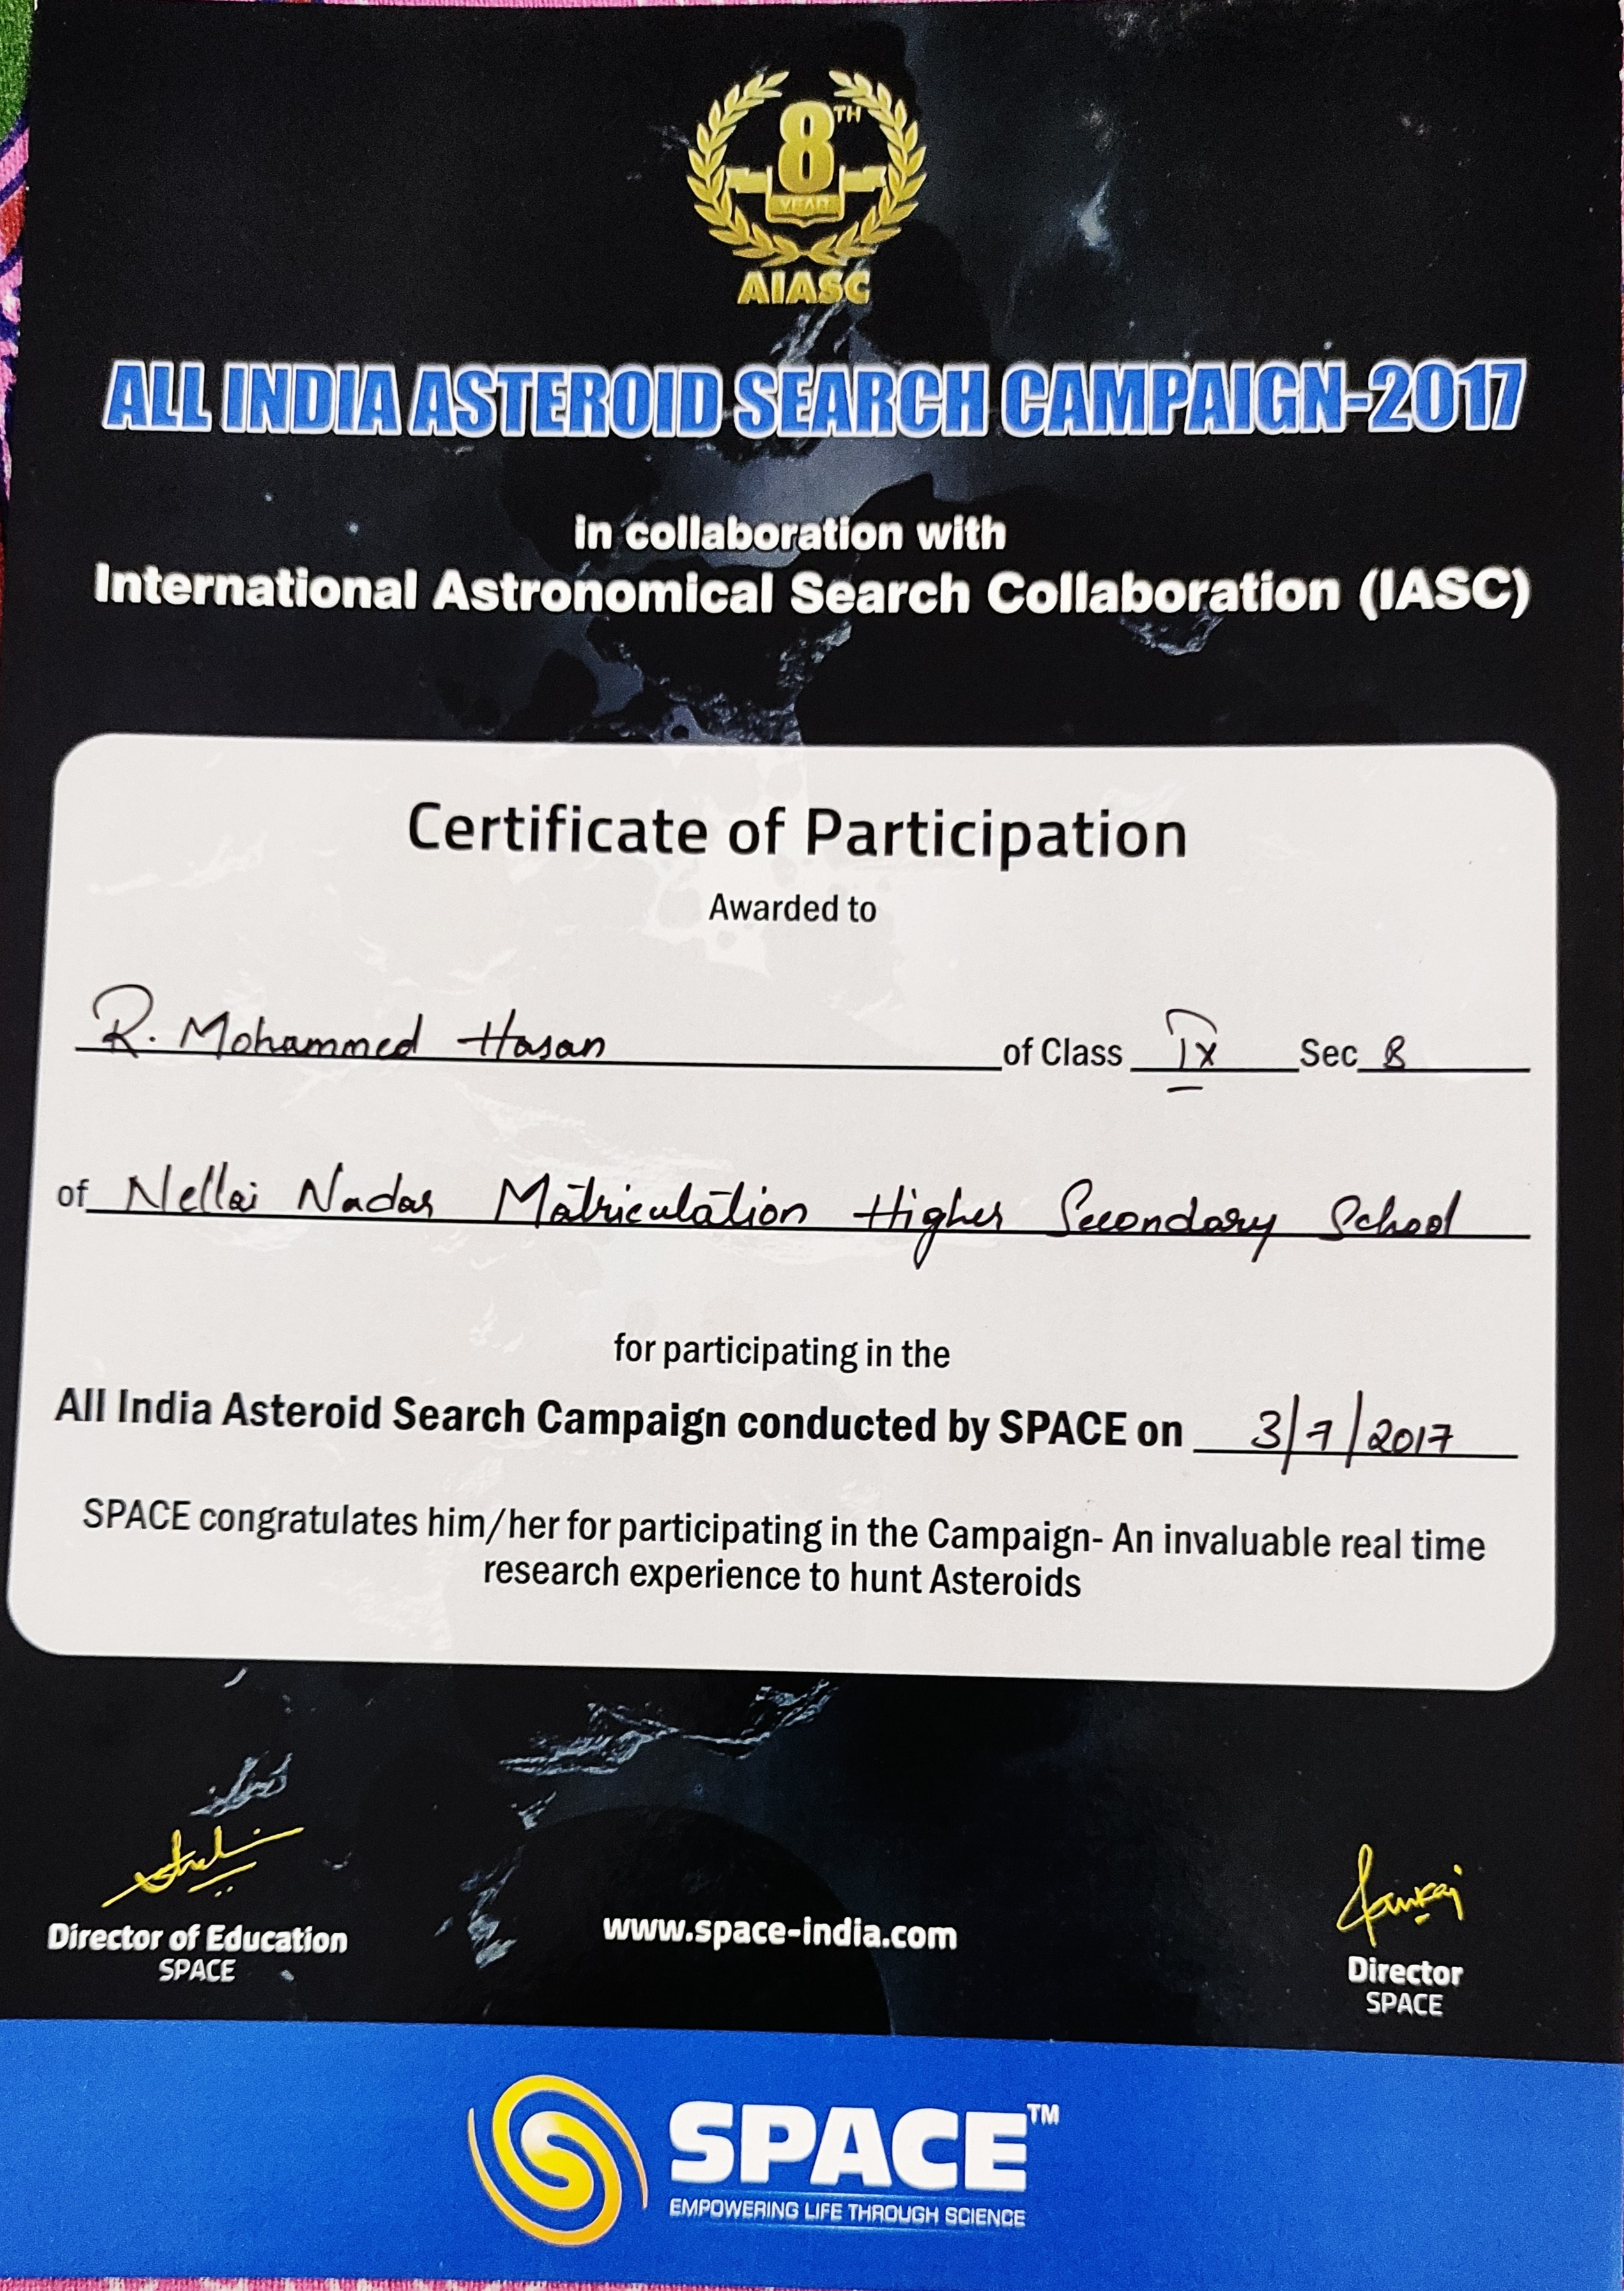 8TH
YEAR
AIASC
ALL INDIA ASTEROID SEARCH CAMPAIGN-2017
in collaboration with
International Astronomical Search Collaboration (IASC)
Certificate of Participation
Awarded to
R. Mohammed Hasan of Class IX Sec B
of Nellai Nadar Matriculation Higher Secondary School
for participating in the
All India Asteroid Search Campaign conducted by SPACE on 3/7/2017
SPACE congratulates him/her for participating in the Campaign- An invaluable real time
research experience to hunt Asteroids
Director of Education
SPACE
www.space-india.com
Director
SPACE
SPACE™
EMPOWERING LIFE THROUGH SCIENCE